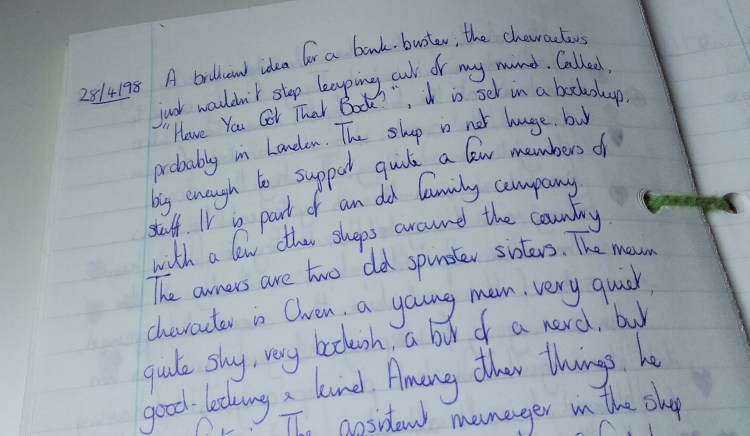 28/4/98 A brilliant idea for a bonk-buster, the characters
just wouldn't stop leaping out of my mind. Called,
"Have You Got That Book?", it is set in a bookshop,
probably in London. The shop is not huge, but
big enough to support quite a few members of
staff. It is part of an old family company
with a few other shops around the country.
The owners are two old spinster sisters. The main
character is Owen, a young man, very quiet,
quite shy, very bookish, a bit of a nerd, but
good-looking & kind. Among other things, he
The assistant manager in the shop